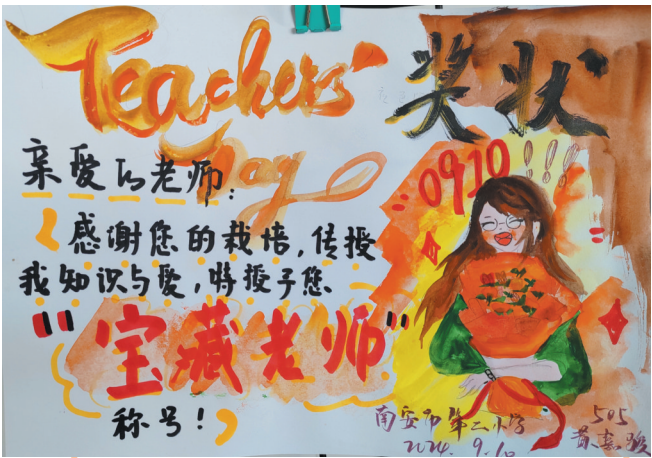 Teachers' 奖状
Day 0910 !!!
亲爱的老师:
感谢您的栽培,传授
我知识与爱,特授予您
"宝藏老师"
称号!
南安市第二小学 505
2024.9.10 黄嘉